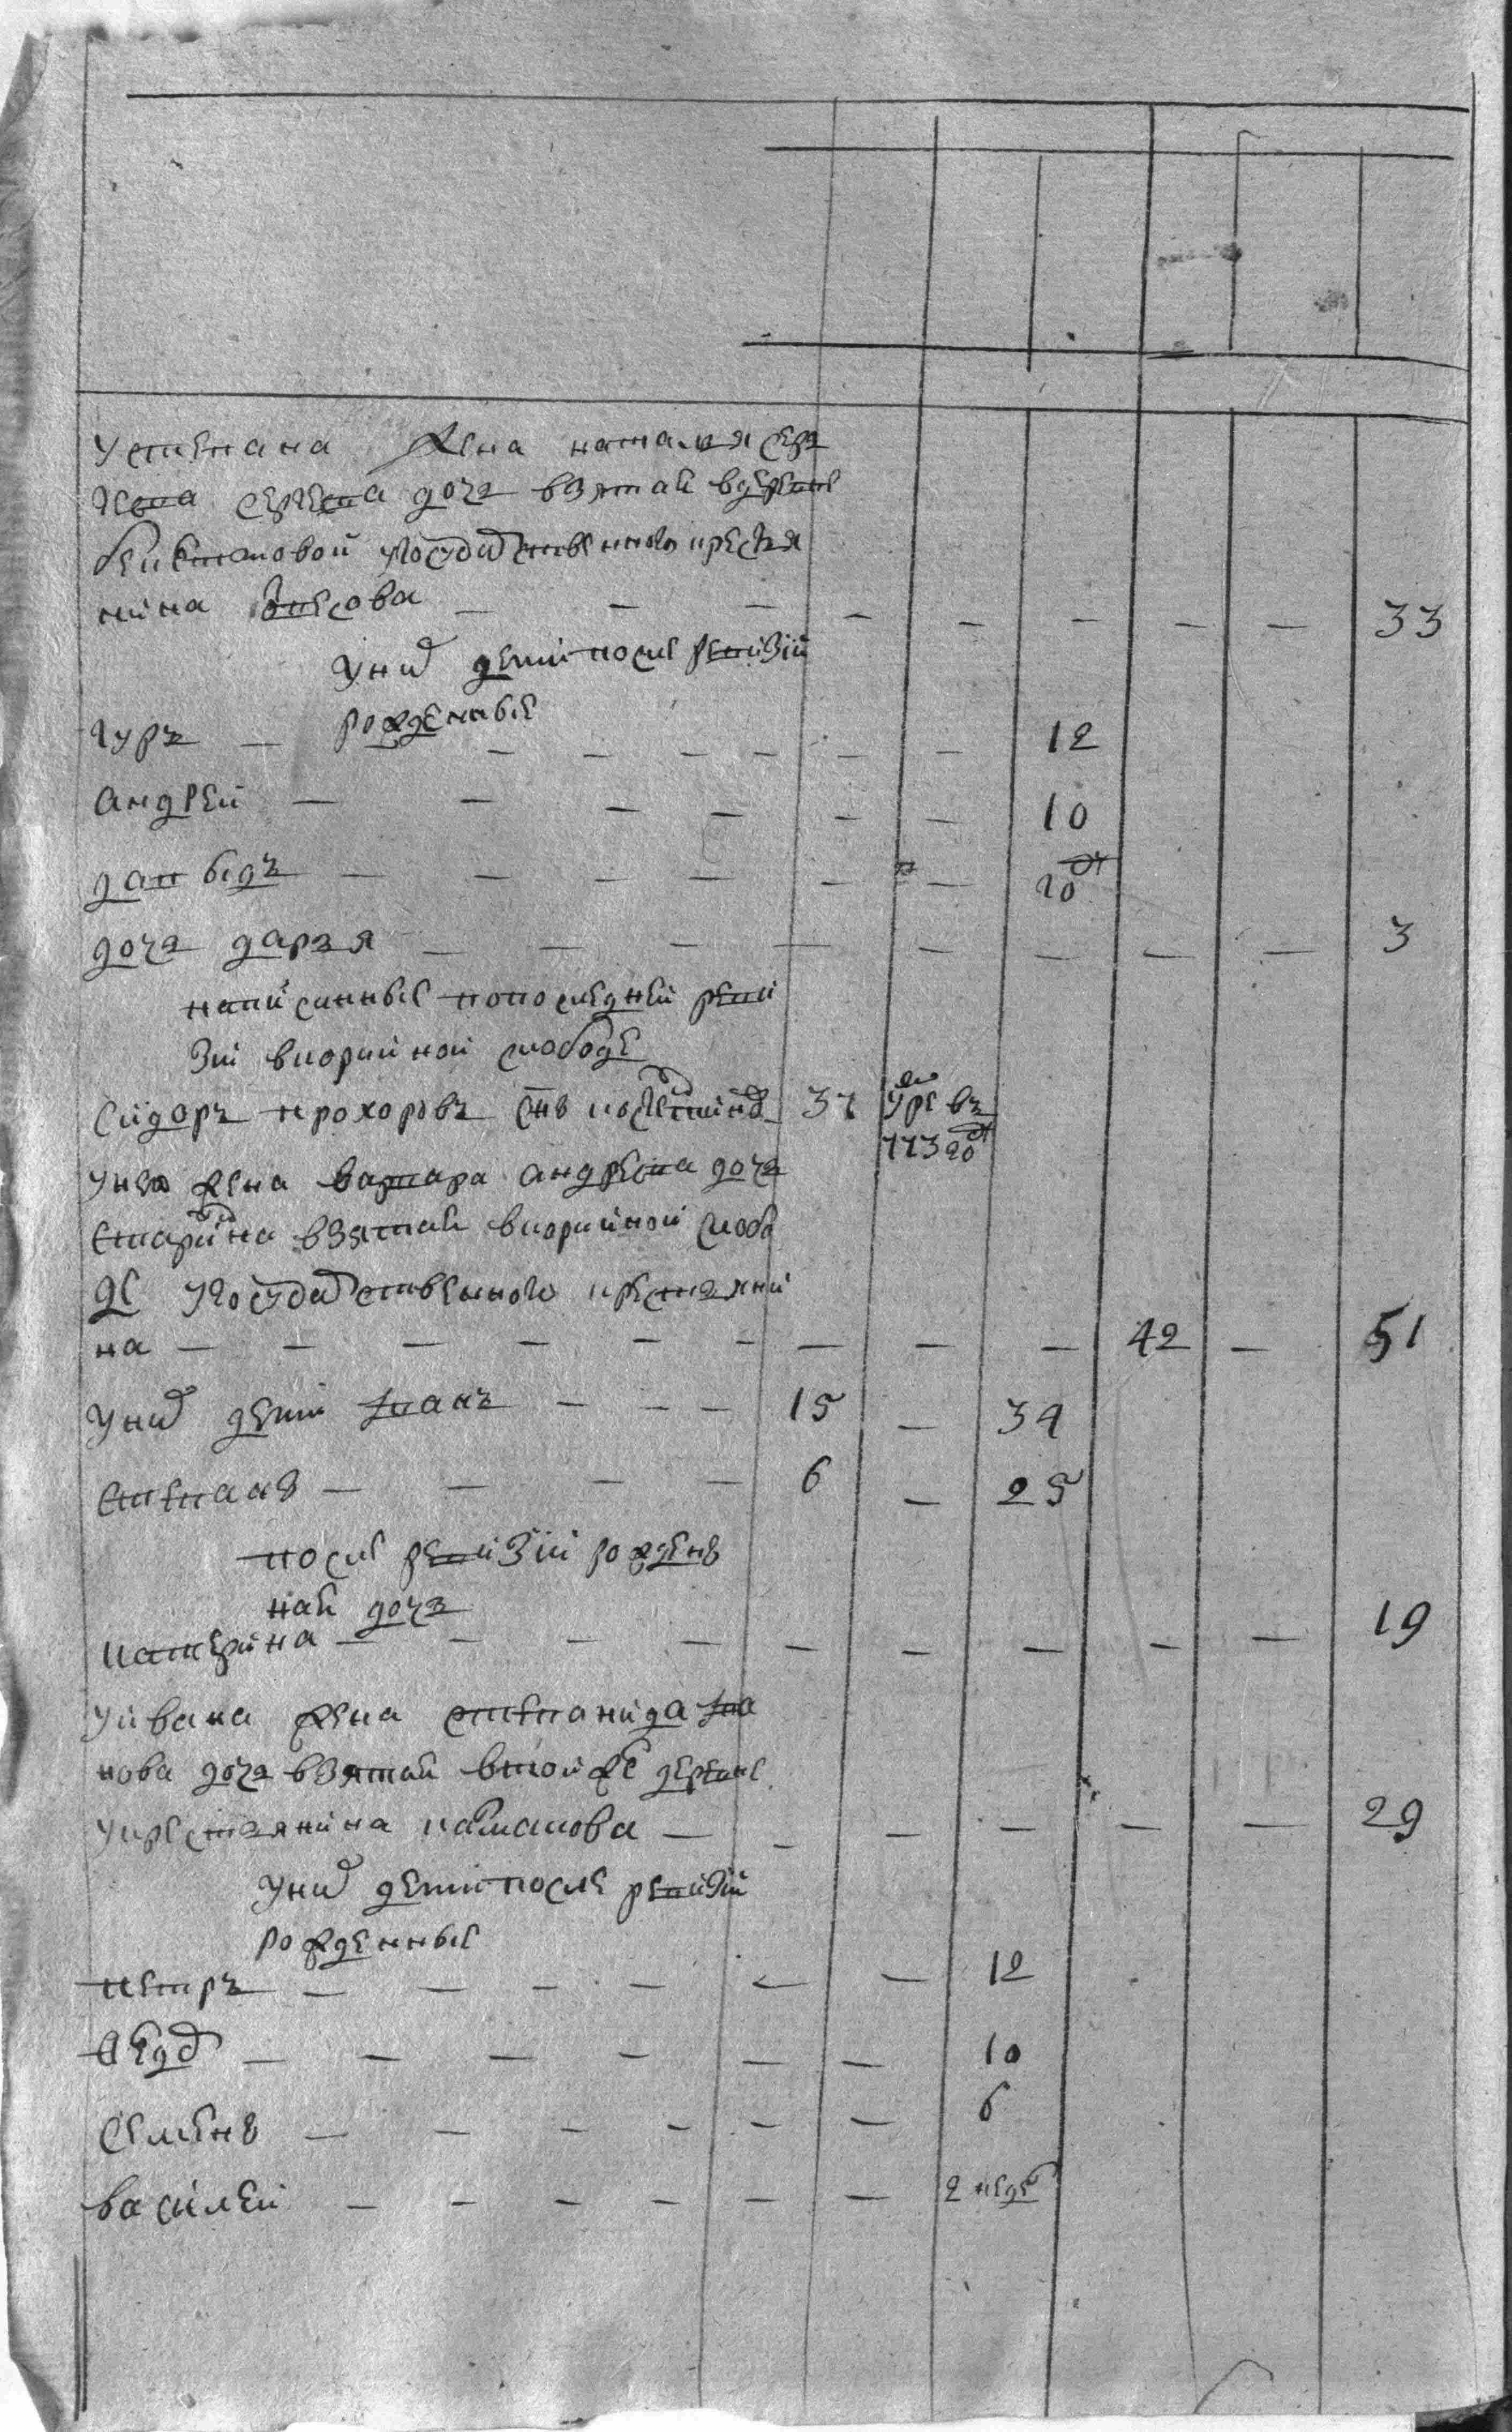 устепана жена наталья серг
геева сергеева дочь взятая вдеревне
государственного крестья
нина
уних дети после ревизии
рожденные
гуръ — 12
андрей — 10
давыдъ — год
дочь дарья — 3
написанные попоследней реви
зии слободе
сидоръ прохоровъ снъ 37 умре въ
773 год
унего жена варвара андреева дочь
взятая слобо
де угосударственного крестьяни
на — 42 — 51
уних дети иванъ — 15 — 34
степанъ — 6 — 25
после ревизии рожден
ная дочь
катерина — 19
уивана жена степанида ива
нова дочь взятая втойже деревне
укрестьянина — 29
уних дети после ревизии
рожденные
петръ — 12
— 10
семенъ — 6
василей — 2 недел